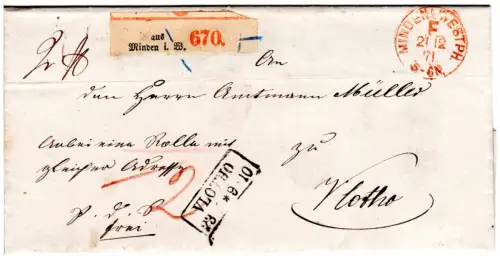 aus
Minden i. W. 670.
MINDEN WESTPH.
F
21 12
71
5-6N.
An
den Herrn Amtmann Müller
Anbei eine Rolle mit
gleicher Adresse
zu
Vlotho
2
VLOTHO
23 * 9-10
p. d. S
frei